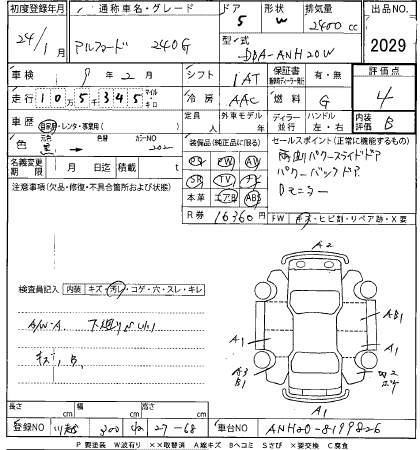 初度登録年月 通称車名・グレード ドア 形状 排気量 出品NO.
24/1月 アルファード 240G 5 W 2400cc 2029
型式 DBA-ANH20W
車検 9年2月 シフト IAT 保証書 有・無 評価点
走行 105345 マイル キロ 冷房 AAC 燃料 G 4
車歴 自家用・レンタ・事業用( ) 定員 人 外車モデル 年 ディーラー 並行 ハンドル 左・右 内装評価 B
色 元色 黒 色替 カラーNO 202 装備品(純正品に限る) セールスポイント(正常に機能するもの)
名義変更期限 月 日迄 積載 t PS PW AW 両側パワースライドドア
注意事項(欠品・修復・不具合箇所および状態) SR TV ナビ パワーバックドア
本革 エアB ABS Dモニター
R券 16360円 FW キズ・ヒビ割・リペア跡・X要
A2
検査員記入 内装 キズ・汚レ・コゲ・穴・スレ・キレ
A1 AB1
A/W-A 下廻りサビ
A1
キズ、B、 A3 B1 W2
A1
長さ cm 幅 cm 高さ cm
登録NO 300 27-68 車台NO ANH20-8199826
P 要塗装 W波有り ××取替済 A線キズ Bヘコミ Sさび ×要交換 C腐食